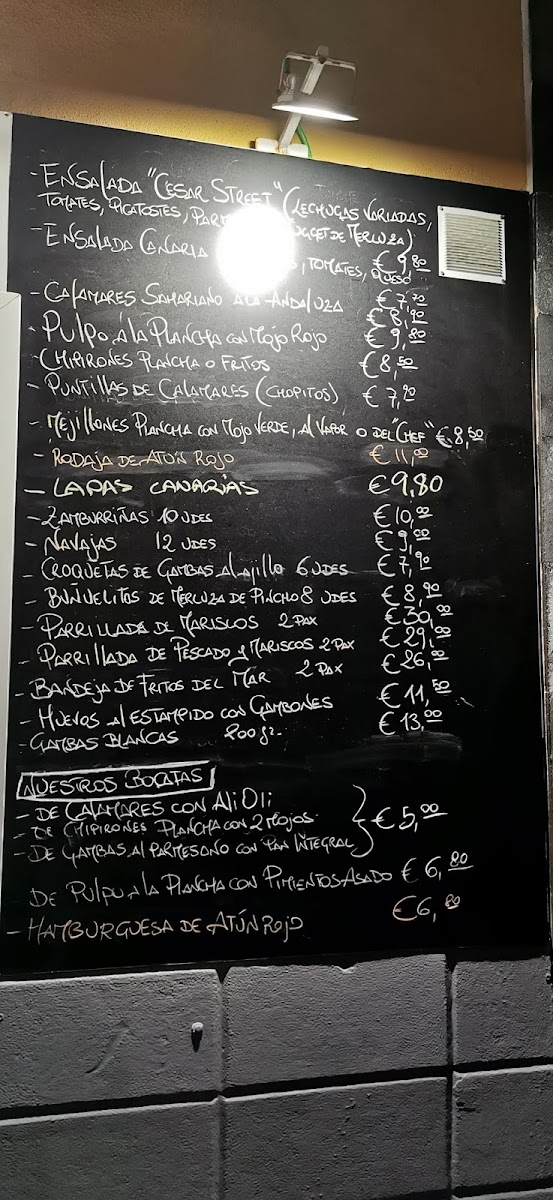 - ENSALADA "CESAR STREET" (LECHUGAS VARIADAS,
TOMATES, PICATOSTES, NUGGET DE MERLUZA)
- ENSALADA CANARIA TOMATES, QUESO € 9,80
- CALAMARES SAHARIANO A LA ANDALUZA € 7,70
€ 8,90
- PULPO A LA PLANCHA CON MOJO ROJO € 9,80
- CHIPIRONES PLANCHA O FRITOS € 8,50
- PUNTILLAS DE CALAMARES (CHOPITOS) € 7,90
- MEJILLONES PLANCHA CON MOJO VERDE, AL VAPOR O DEL "CHEF" € 8,50
- RODAJA DE ATÚN ROJO € 11,00
- LAPAS CANARIAS € 9,80
- ZAMBURRIÑAS 10 UDES € 10,00
- NAVAJAS 12 UDES € 9,00
- CROQUETAS DE GAMBAS AL AJILLO 6 UDES € 7,90
- BUÑUELITOS DE MERLUZA DE PINCHO 8 UDES € 8,90
- PARRILLADA DE MARISCOS 2 PAX € 30,00
- PARRILLADA DE PESCADO y MARISCOS 2 PAX € 29,00
- BANDEJA DE FRITOS DEL MAR 2 PAX € 26,00
- HUEVOS AL ESTAMPIDO CON GAMBONES € 11,50
- GAMBAS BLANCAS 200 gr. € 13,00
NUESTROS BOCATAS
- DE CALAMARES CON ALIOLI
- DE CHIPIRONES PLANCHA CON 2 MOJOS € 5,00
- DE GAMBAS AL PARMESANO CON PAN INTEGRAL
DE PULPO A LA PLANCHA CON PIMIENTOS ASADO € 6,80
- HAMBURGUESA DE ATÚN ROJO € 6,80